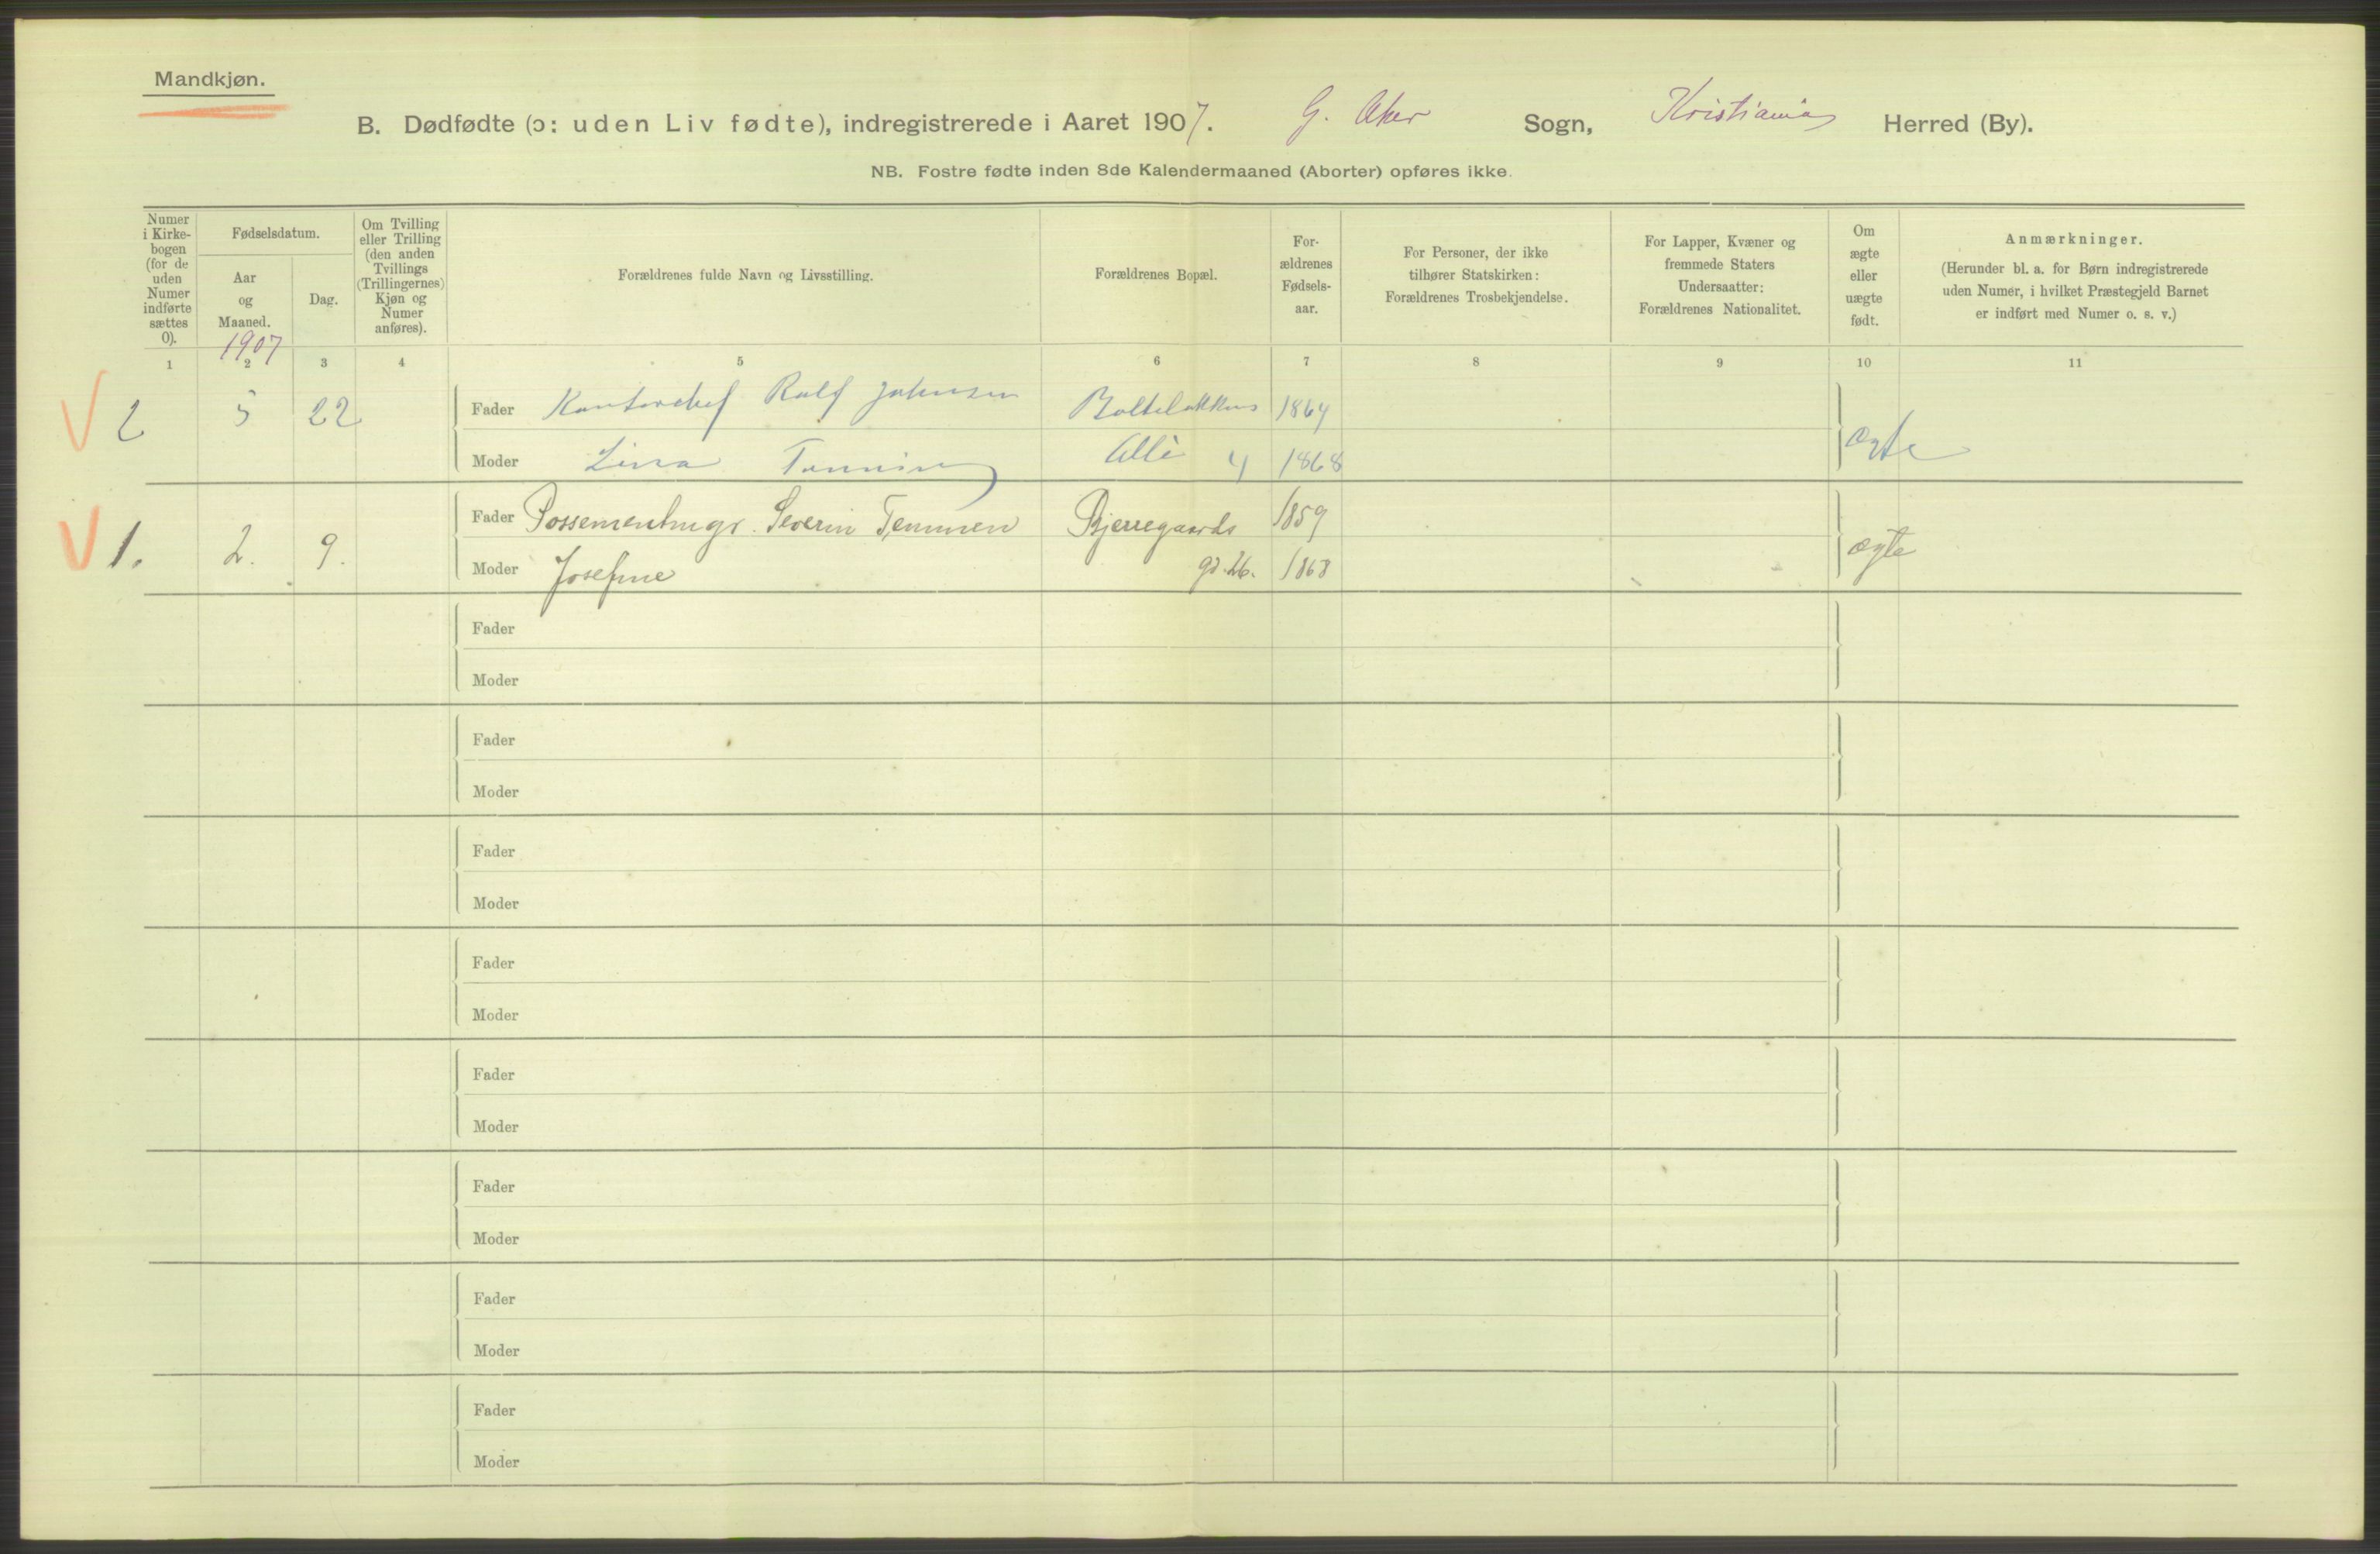 Mandkjøn.
B. Dødfødte (ɔ: uden Liv fødte), indregistrerede i Aaret 1907. G. Aker Sogn, Kristiania Herred (By).
NB. Fostre fødte inden 8de Kalendermaaned (Aborter) opføres ikke.
Numer
i Kirke-
bogen
(for de
uden
Numer
indførte
sættes
0).
Fødselsdatum.
Aar
og
Maaned.
Dag.
Om Tvilling
eller Trilling
(den anden
Tvillings
(Trillingernes)
Kjøn og
Numer
anføres).
Forældrenes fulde Navn og Livsstilling.
Forældrenes Bopæl.
For-
ældrenes
Fødsels-
aar.
For Personer, der ikke
tilhører Statskirken:
Forældrenes Trosbekjendelse.
For Lapper, Kvæner og
fremmede Staters
Undersaatter:
Forældrenes Nationalitet.
Om
ægte
eller
uægte
født.
Anmærkninger.
(Herunder bl. a. for Børn indregistrerede
uden Numer, i hvilket Præstegjeld Barnet
er indført med Numer o. s. v.)
1907
1 2 3 4 5 6 7 8 9 10 11
2 5 22 Fader Kontorchef Rolf Johnsen Bolteløkkens 1864
Moder Lina Allé 4 1868 ægte
1. 2. 9. Fader Severin Bjerregaards 1859
Moder Josefine gd. 26. 1868 ægte
Fader
Moder
Fader
Moder
Fader
Moder
Fader
Moder
Fader
Moder
Fader
Moder
Fader
Moder
Fader
Moder